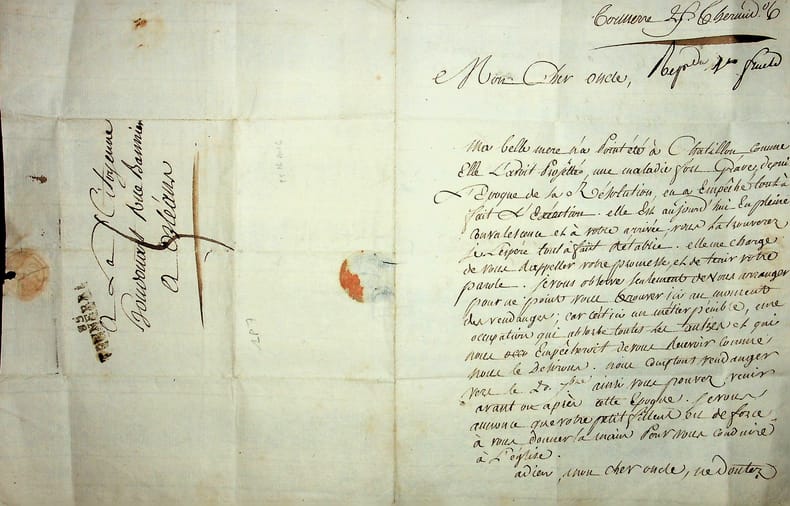 A La Citoyenne
Baudouin Rue Bannier
A Orléans
5
TONNERRE
Tonnerre 25 Thermid. 06
Mon Cher oncle,
Ma belle mere n'a point été à Chatillon comme
Elle L'avoit Projetté, une maladie fort Grave, depuis
L'Epoque de la Résolution, en a Empêché tout à
fait L'Execution. elle Est aujourd'hui En pleine
Convalescence et à votre arrivée, vous La trouverez
Je L'espère tout à fait rétablie. elle me charge
de vous rappeller votre promesse, et de tenir votre
parole. Je vous observe seulement de vous arranger
pour ne point vous trouver ici au moment
des vendanges; car c'est ici un métier pénible, une
occupation qui absorbe toutes les autres et qui
nous Empêcheroit de vous recevoir comme
nous le desirons. nous comptons vendanger
vers le 20. 7bre ainsi vous pouvez venir
avant ou après cette Epoque. Je vous
annonce que votre petit filleul est de force
à vous donner la main Pour vous conduire
à L'église.
adieu, mon cher oncle, ne Doutez